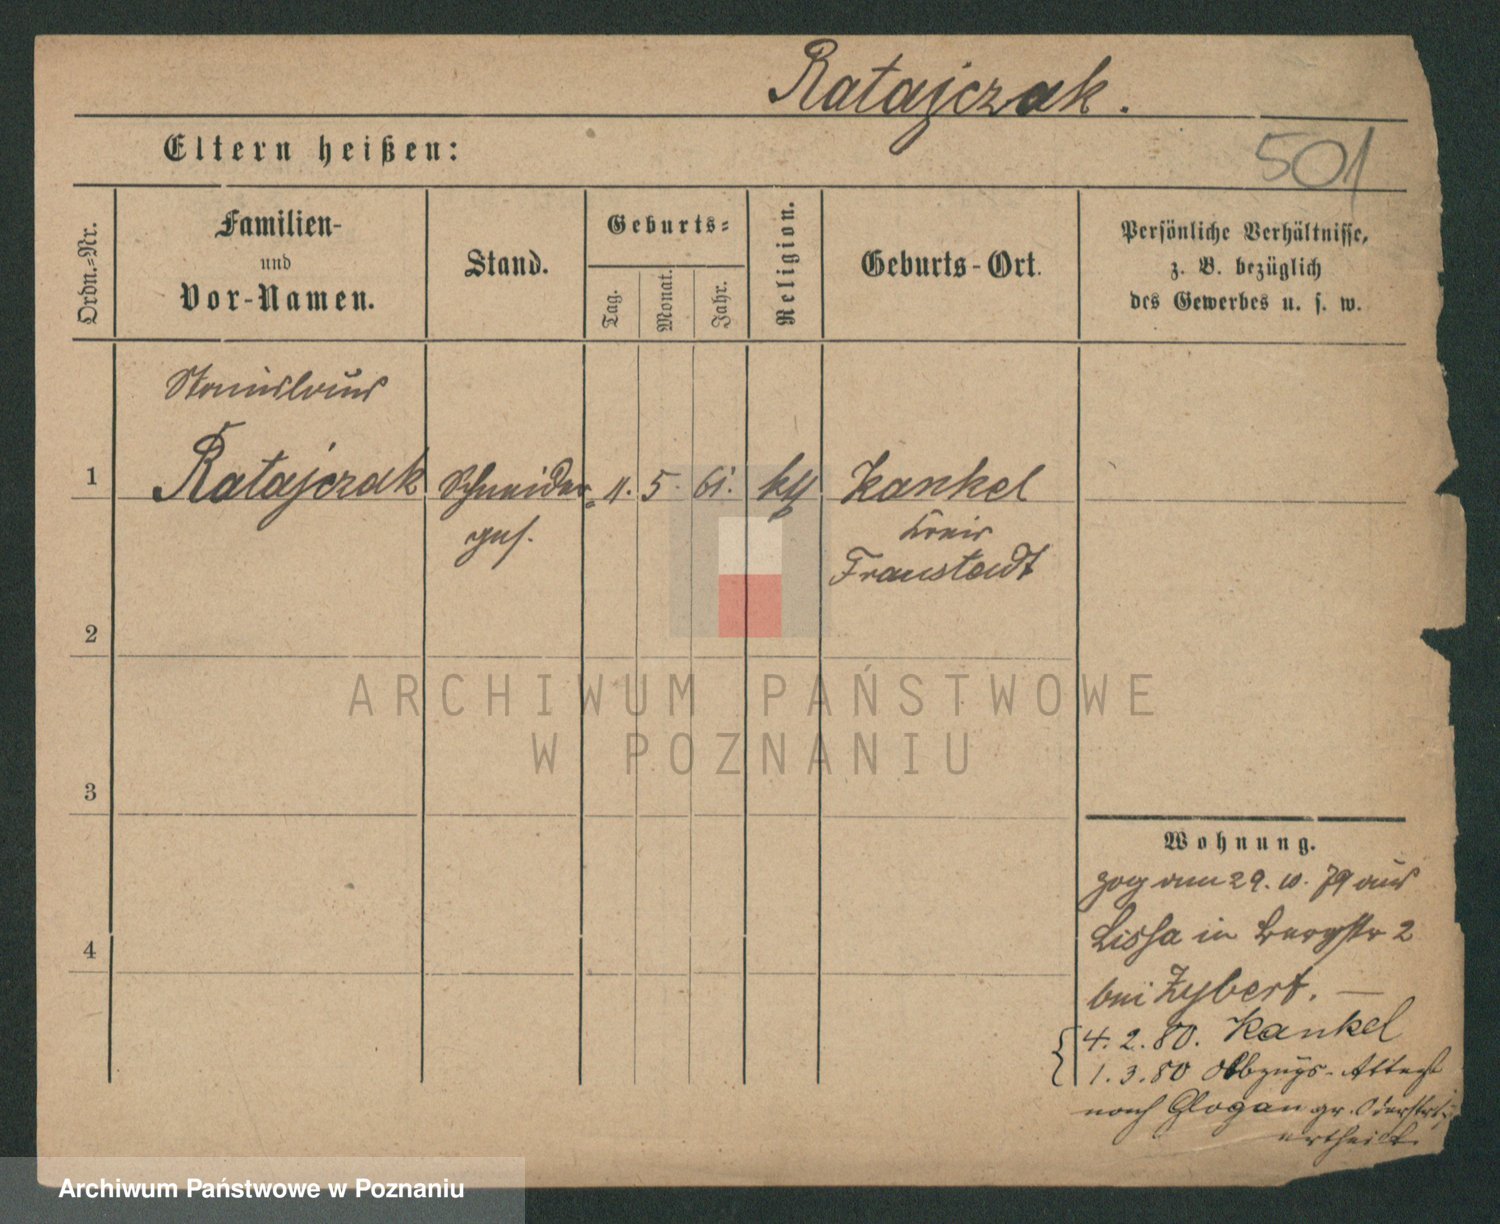 Ratajczak.
Eltern heißen:
501
Ordn.-Nr.
Familien-
und
Vor-Namen.
Stand.
Geburts-
Tag.
Monat.
Jahr.
Religion.
Geburts-Ort.
Persönliche Verhältnisse,
z. B. bezüglich
des Gewerbes u. s. w.
Stanislaus
1 Ratajczak Schneider- 11. 5. 61. kth Kankel
ges. Kreis
Fraustadt
2
3
4
Wohnung.
zog am 29. 10. 79 aus
Lissa in Bergstr 2
bei Zybert. —
4. 2. 80. Kankel
1. 3. 80 Abzugs-Attest
nach Glogau gr. Oderstr
ertheilt.
ARCHIWUM PAŃSTWOWE
W POZNANIU
Archiwum Państwowe w Poznaniu